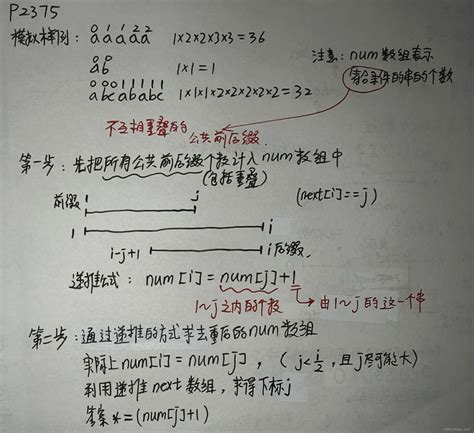 P2375
模拟样例:
0 0 1 1 2 2
a a a a a 1×2×2×3×3=36
0 0
a b 1×1=1
0 0 0 1 1 1 1 1
a b c a b a b c 1×1×1×2×2×2×2×2=32
注意:num数组表示
符合条件的串的个数
不互相重叠的公共前后缀
第一步:先把所有公共前后缀个数计入num数组中
(包括重叠)
前缀 1 j (next[i]==j)
1 i
i-j+1 i 后缀.
递推公式:num[i]=num[j]+1
1~j之内的个数 由1~j的这一个串
第二步:通过递推的方式求去重后的num数组
实际上num[i]=num[j],(j<i/2,且j尽可能大)
利用递推next数组,求得下标j
答案*=(num[j]+1)